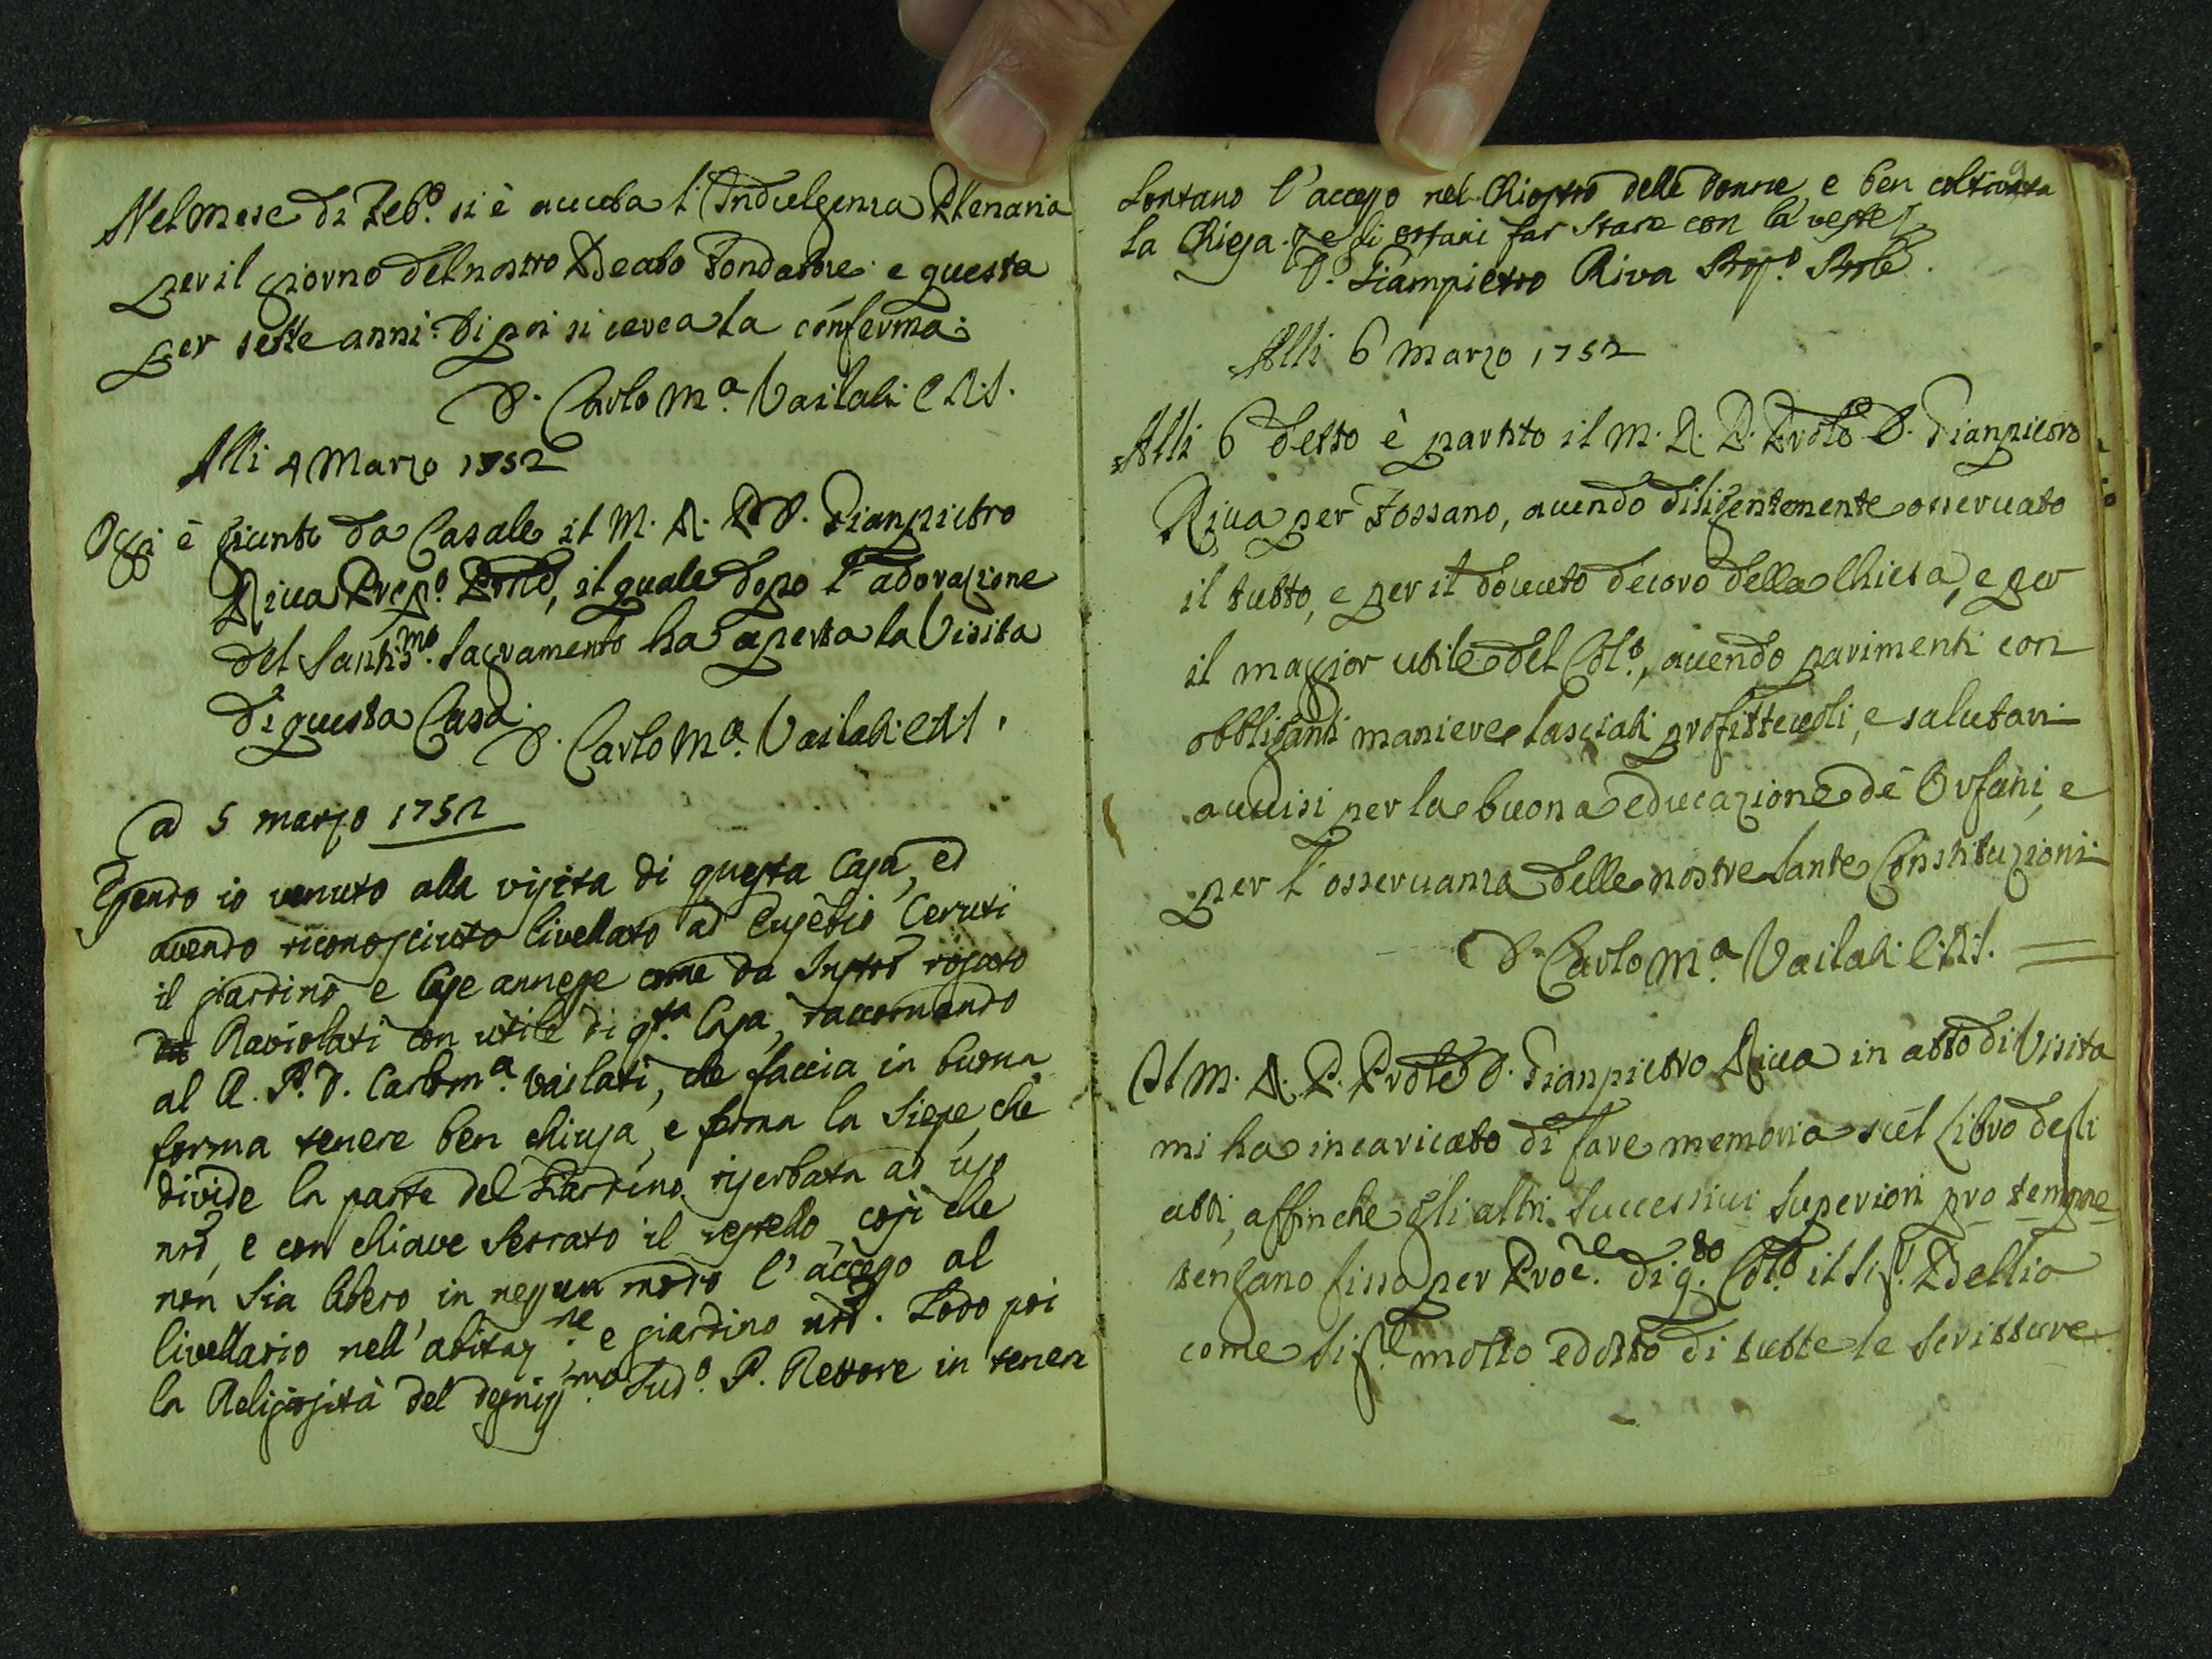 Nel mese di Feb.o si è avuta l'Indulgenza Plenaria
per il giorno del nostro Beato Fondatore: e questa
per sette anni: di poi si cerca la conferma:
D. Carlo M.a Vailati C.R.S.
Alli 4 Marzo 1752
Oggi è giunto da Casale il M. R. P. D. Gianpietro
Riva Prep.o Prole, il quale dopo l'adorazione
del Santis.mo Sacramento ha aperta la Visita
di questa Casa.
D. Carlo M.a Vailati C.R.S.
A 5 marzo 1752
Essendo io venuto alla visita di questa Casa, ed
avendo riconosciuto livellato ad Eusebio Ceruti
il giardino e Case annesse come da Instro rogato
Raviolati con utile di q.ta Casa, raccomando
al R. P. D. Carlo m.a Vailati, che faccia in buona
forma tenere ben chiusa, e ferma la Siepe, che
divide la parte del Giardino riserbata ad uso
nro, e con chiave serrato il restello, così che
non sia libero in nessun modo l'accesso al
livellario nell'abitaz.ne e giardino nro. Lodo poi
la Religiosità del degniss.mo Sud.o P. Rettore in tener
lontano l'accesso nel Chiostro delle donne, e ben coltivata
la Chiesa. e gli orfani far stare con la veste
D. Giampietro Riva Prep.o Prole.
Alli 6 marzo 1752
Alli 6 detto è partito il M. R. P. Prole D. Gianpietro
Riva per Fossano, avendo diligentemente osservato
il tutto, e per il dovuto decoro della Chiesa, e per
il maggior utile del Col.o, avendo parimenti con
obbliganti maniere lasciati profittevoli, e salutari
avvisi per la buona educazione de' Orfani, e
per l'osservanza delle nostre Sante Constituzioni
D. Carlo M.a Vailati C.R.S.
Il M. R. P. Prole D. Gianpietro Riva in atto di Visita
mi ha incaricato di fare memoria sul Libro degli
atti, affinche gli altri Successivi Superiori pro tempore
tengano fisso per Proc.re di q.to Col.o il Sig.r Bellio
come Sig.re molto edotto di tutte le Scritture